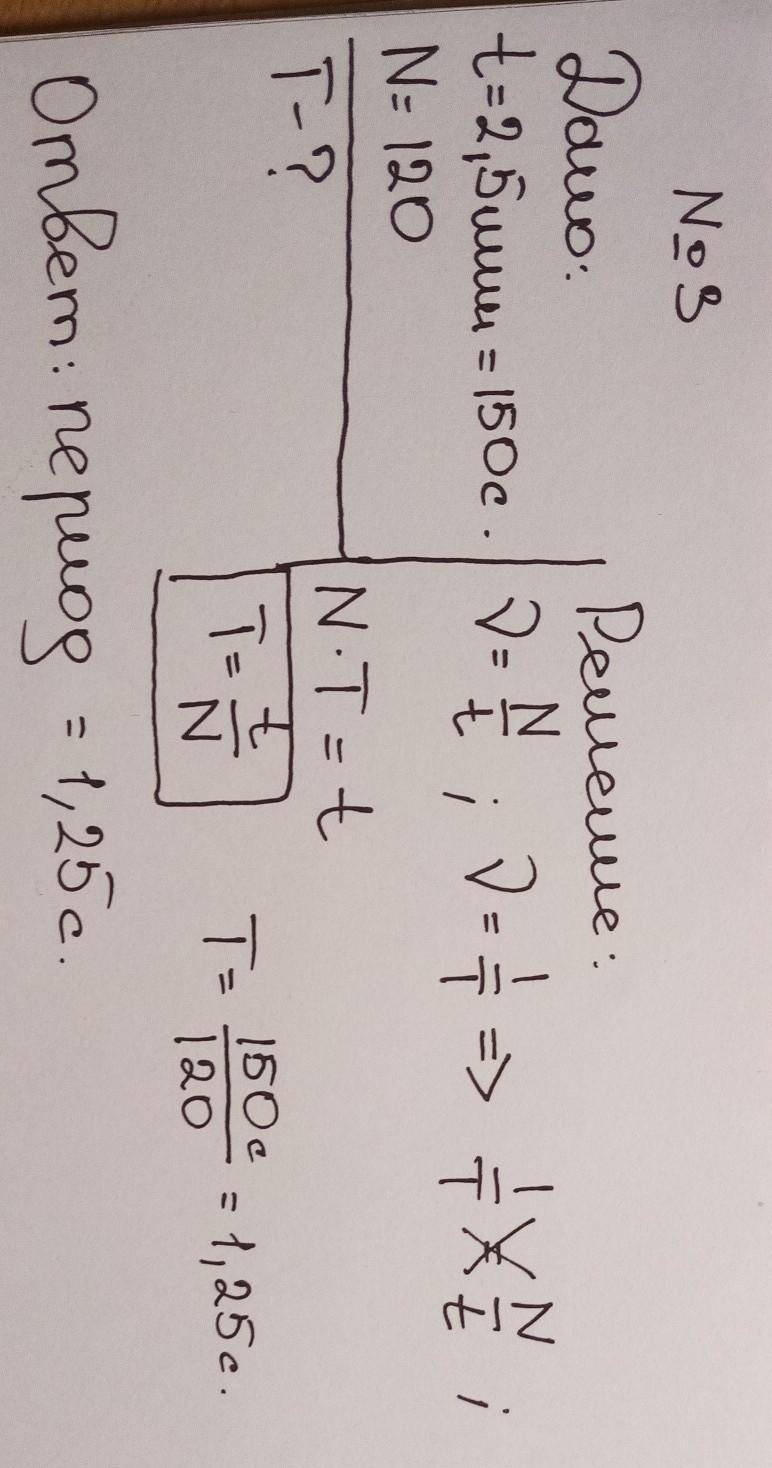 №3
Дано:
t=2,5мин=150с.
N=120
T-?
Решение:
ν=N/t; ν=1/T => 1/T=N/t;
N·T=t
T=t/N
T=150с/120=1,25с.
Ответ: период =1,25с.